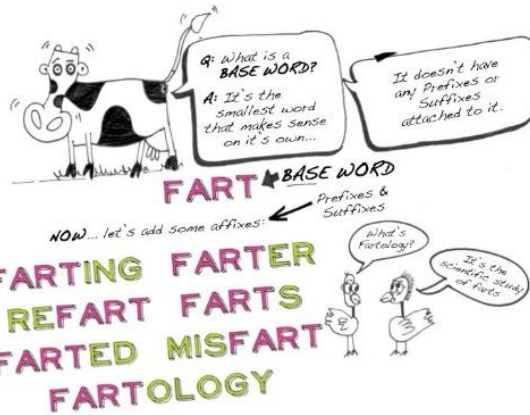 Q: What is a
BASE WORD?
A: It's the
smallest word
that makes sense
on it's own...
It doesn't have
any Prefixes or
Suffixes
attached to it.
FART
BASE WORD
Prefixes &
Suffixes
NOW... let's add some affixes:
FARTING FARTER
REFART FARTS
FARTED MISFART
FARTOLOGY
What's
Fartology?
It's the
scientific study
of farts